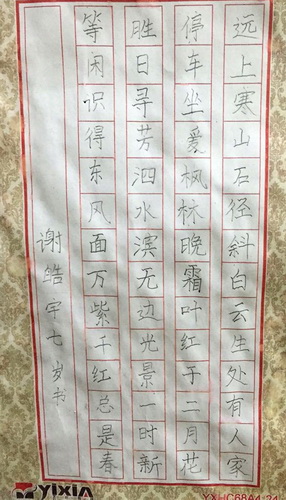 远上寒山石径斜白云生处有人家
停车坐爱枫林晚霜叶红于二月花
胜日寻芳泗水滨无边光景一时新
等闲识得东风面万紫千红总是春
谢皓宇七岁书
YIXIN
YXHC68A4-24